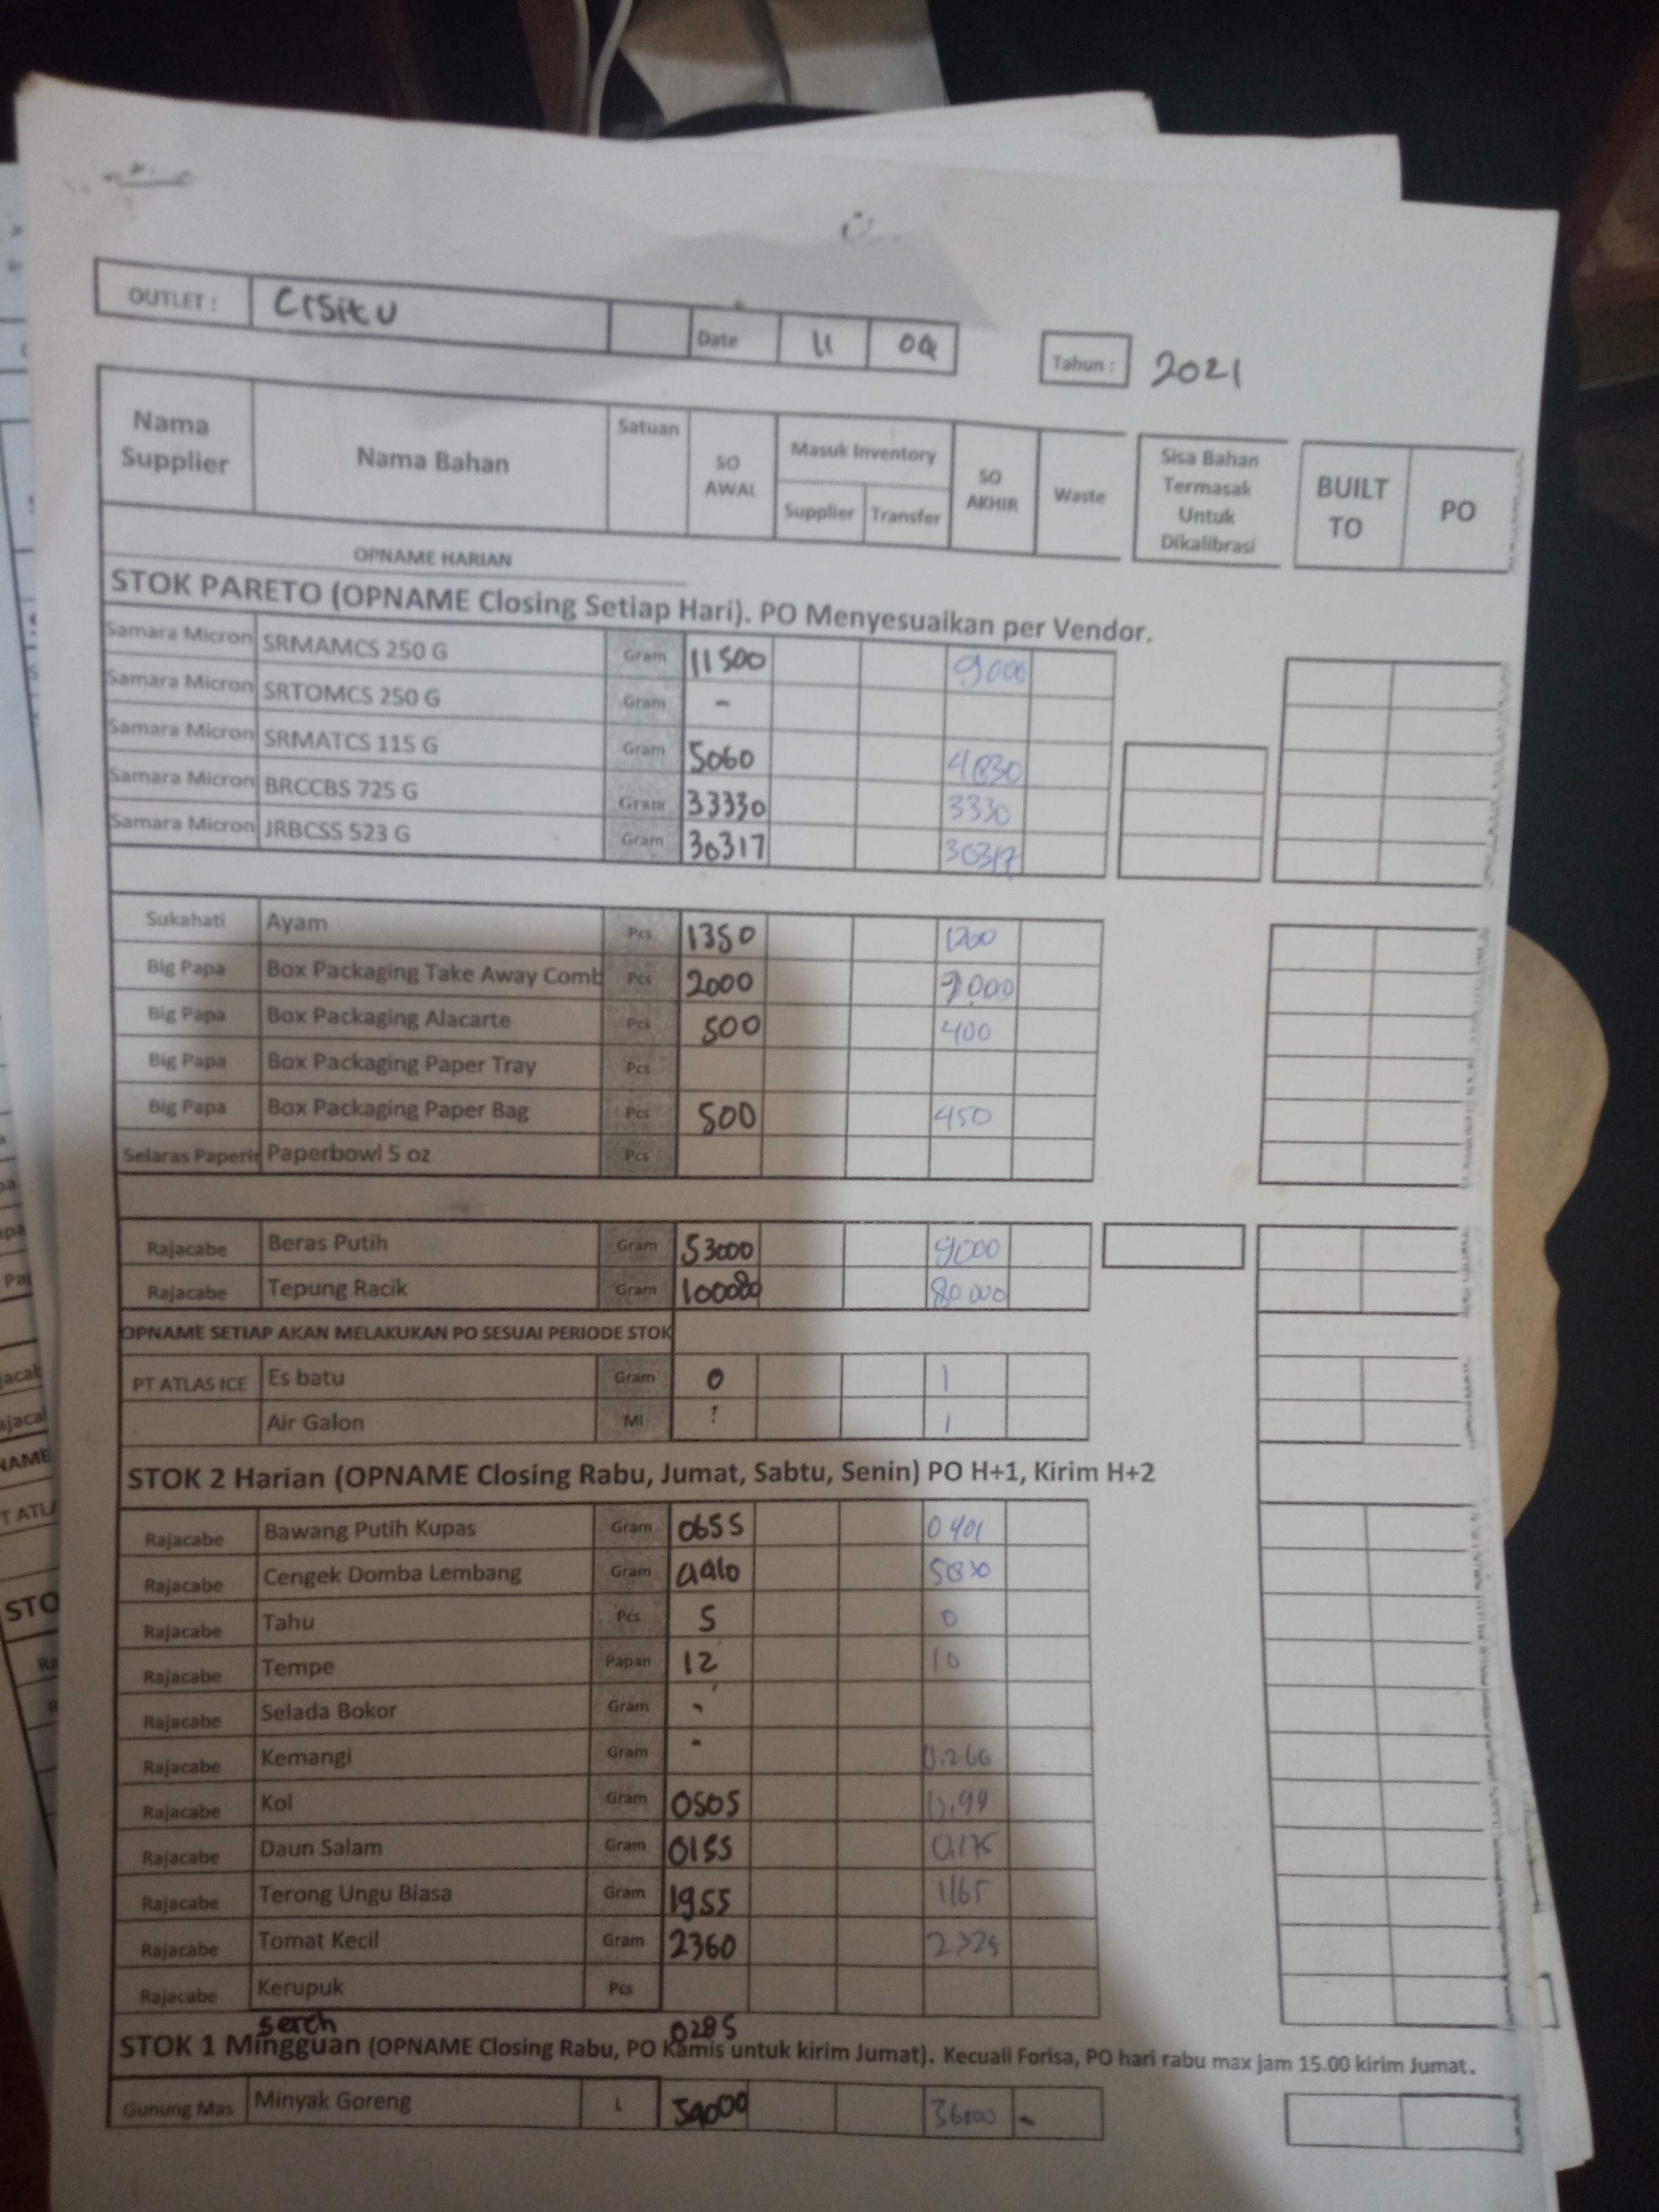 OUTLET : CISITU Date 11 04 Tahun : 2021
Nama Supplier Nama Bahan Satuan SO AWAL Masuk Inventory Supplier Transfer SO AKHIR Waste Sisa Bahan Termasak Untuk Dikalibrasi BUILT TO PO
OPNAME HARIAN
STOK PARETO (OPNAME Closing Setiap Hari). PO Menyesuaikan per Vendor.
Samara Micron SRMAMCS 250 G Gram 11500 9000
Samara Micron SRTOMCS 250 G Gram -
Samara Micron SRMATCS 115 G Gram 5060 4830
Samara Micron BRCCBS 725 G Gram 33330 3330
Samara Micron JRBCSS 523 G Gram 30317 30317
Sukahati Ayam Pcs 1350 1200
Big Papa Box Packaging Take Away Comb Pcs 2000
Big Papa Box Packaging Alacarte Pcs 500 400
Big Papa Box Packaging Paper Tray Pcs
Big Papa Box Packaging Paper Bag Pcs 500 450
Selaras Paperin Paperbowl 5 oz Pcs
Rajacabe Beras Putih Gram 53000 9000
Rajacabe Tepung Racik Gram 80 000
OPNAME SETIAP AKAN MELAKUKAN PO SESUAI PERIODE STOK
PT ATLAS ICE Es batu Gram 0 1
Air Galon Ml 1
STOK 2 Harian (OPNAME Closing Rabu, Jumat, Sabtu, Senin) PO H+1, Kirim H+2
Rajacabe Bawang Putih Kupas Gram 0655 0401
Rajacabe Cengek Domba Lembang Gram 5830
Rajacabe Tahu Pcs 5 0
Rajacabe Tempe Papan 12 10
Rajacabe Selada Bokor Gram -
Rajacabe Kemangi Gram - 0.266
Rajacabe Kol Gram 0505 0.99
Rajacabe Daun Salam Gram 0155 0.175
Rajacabe Terong Ungu Biasa Gram 1955 1165
Rajacabe Tomat Kecil Gram 2360 2325
Rajacabe Kerupuk Pcs
sereh 0285
STOK 1 Mingguan (OPNAME Closing Rabu, PO Kamis untuk kirim Jumat). Kecuali Forisa, PO hari rabu max jam 15.00 kirim Jumat.
Gunung Mas Minyak Goreng L 54000 36000 -